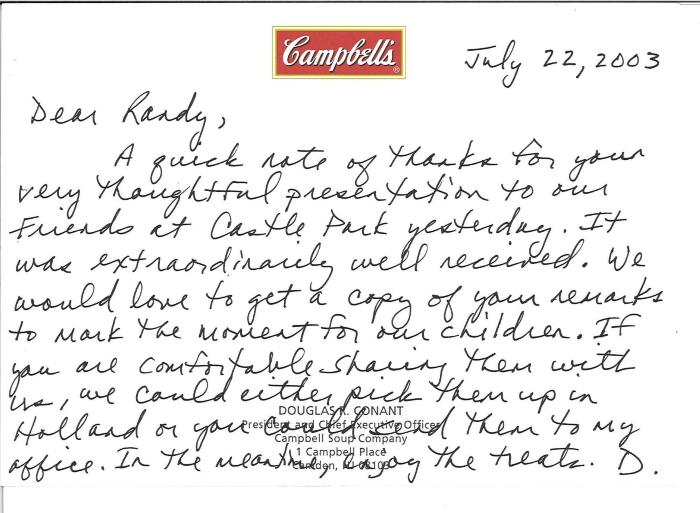 Campbell's®
July 22, 2003
Dear Randy,
A quick note of thanks for your
very thoughtful presentation to our
Friends at Castle Park yesterday. It
was extraordinarily well received. We
would love to get a copy of your remarks
to mark the moment for our children. If
you are comfortable sharing them with
us, we could either pick them up in
DOUGLAS R. CONANT
President and Chief Executive Officer
Holland or you could send them to my
Campbell Soup Company
1 Campbell Place
office. In the meantime, enjoy the treats. D.
Camden, NJ 08103